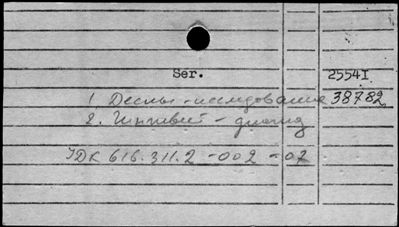 Ser. 25541
1 Десны - исследование 38782
2. Гингивит - диагноз
УДК 616.311.2 -002 -07